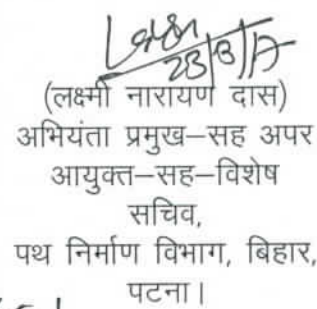 23/8/17
(लक्ष्मी नारायण दास)
अभियंता प्रमुख–सह अपर
आयुक्त–सह–विशेष
सचिव,
पथ निर्माण विभाग, बिहार,
पटना।